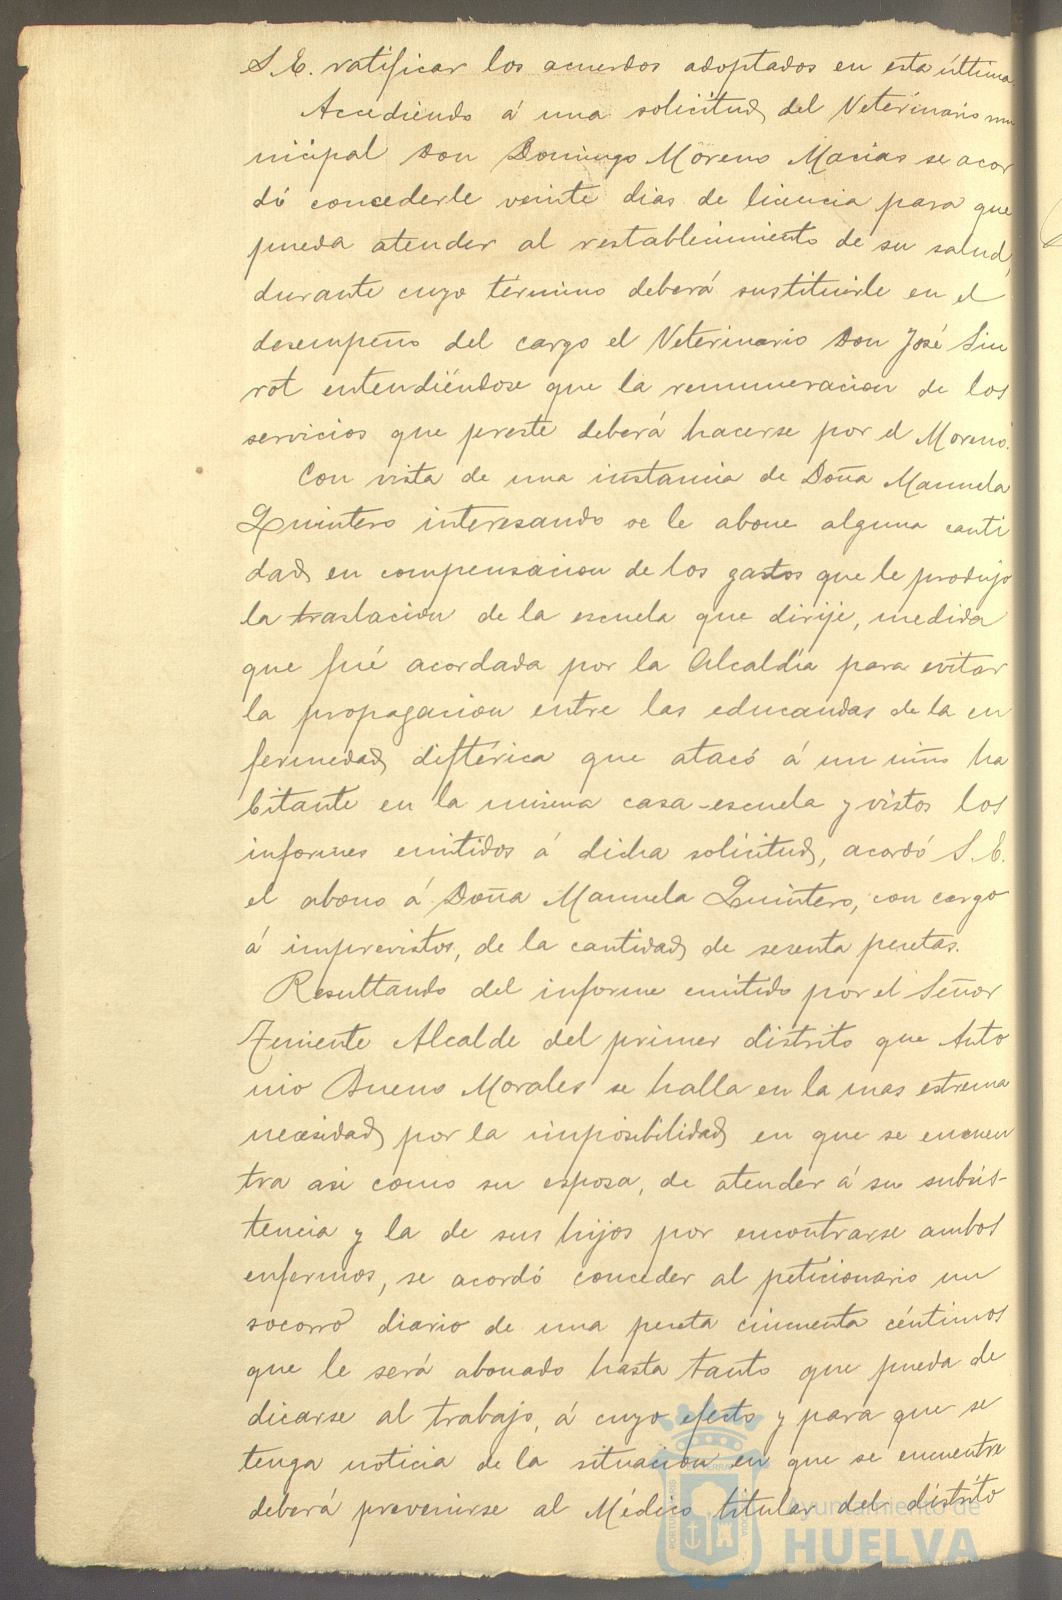 S. E. ratificar los acuerdos adoptados en esta última.
Accediendo á una solicitud del Veterinario mu
nicipal Don Domingo Moreno Macias se acor
dó concederle veinte dias de licencia para que
pueda atender al restablecimiento de su salud,
durante cuyo término deberá sustituirle en el
desempeño del cargo el Veterinario Don José Sin
rot entendiéndose que la remuneracion de los
servicios que preste deberá hacerse por el Moreno.
Con vista de una instancia de Doña Manuela
Quintero interesando se le abone alguna canti
dad en compensacion de los gastos que le produjo
la traslación de la escuela que dirije, medida
que fué acordada por la Alcaldía para evitar
la propagacion entre las educandas de la en
fermedad diftérica que atacó á un niño ha
bitante en la misma casa-escuela y vistos los
informes emitidos á dicha solicitud, acordó S. E.
el abono á Doña Manuela Quintero, con cargo
á imprevistos, de la cantidad de sesenta pesetas.
Resultando del informe emitido por el Señor
Teniente Alcalde del primer distrito que Anto
nio Bueno Morales se halla en la mas estrema
necesidad por la imposibilidad en que se encuen
tra asi como su esposa, de atender á su subsis-
tencia y la de sus hijos por encontrarse ambos
enfermos, se acordó conceder al peticionario un
socorro diario de una peseta cincuenta céntimos
que le será abonado hasta tanto que pueda de
dicarse al trabajo, á cuyo efecto y para que se
tenga noticia de la situacion en que se encuentre
deberá prevenirse al Médico titular del distrito
Ayuntamiento de
HUELVA